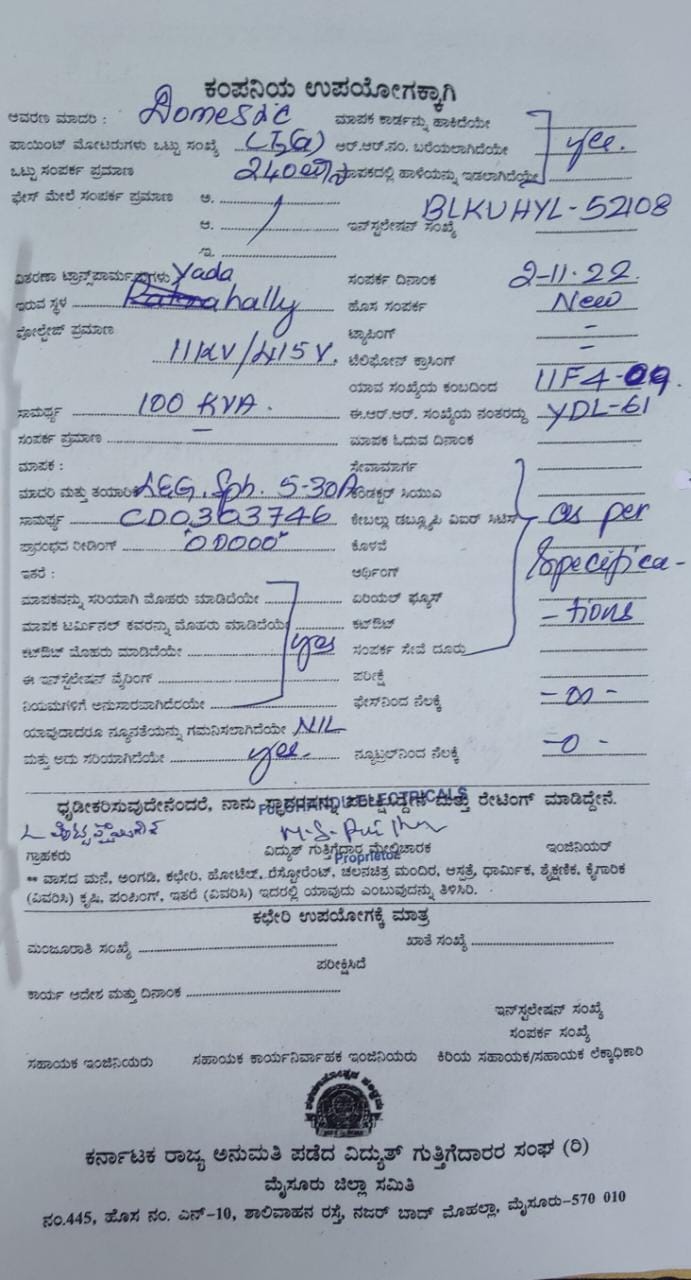 ಕಂಪನಿಯ ಉಪಯೋಗಕ್ಕಾಗಿ
ಆವರಣ ಮಾದರಿ : Domestic ಮಾಪಕ ಕಾರ್ಡನ್ನು ಹಾಕಿದೆಯೇ
ಪಾಯಿಂಟ್ ಮೋಟರುಗಳು ಒಟ್ಟು ಸಂಖ್ಯೆ ಆರ್.ಆರ್.ನಂ. ಬರೆಯಲಾಗಿದೆಯೇ yee.
ಒಟ್ಟು ಸಂಪರ್ಕ ಪ್ರಮಾಣ 240 ಮಾಪಕದಲ್ಲಿ ಹಾಳೆಯನ್ನು ಇಡಲಾಗಿದೆಯೇ
ಫೇಸ್ ಮೇಲೆ ಸಂಪರ್ಕ ಪ್ರಮಾಣ ಅ. BLKUHYL-52108
ಆ. ಇನ್‌ಸ್ಟಲೇಷನ್ ಸಂಖ್ಯೆ
ಇ.
ವಿತರಣಾ ಟ್ರಾನ್ಸ್‌ಪಾರ್ಮರುಗಳು Yada ಸಂಪರ್ಕ ದಿನಾಂಕ 2-11-22
ಇರುವ ಸ್ಥಳ hally ಹೊಸ ಸಂಪರ್ಕ New
ವೋಲ್ಟೇಜ್ ಪ್ರಮಾಣ ಟ್ಯಾಪಿಂಗ್ -
11KV/415V. ಟೆಲಿಫೋನ್ ಕ್ರಾಸಿಂಗ್ -
ಯಾವ ಸಂಖ್ಯೆಯ ಕಂಬದಿಂದ 11F4-09.
ಸಾಮರ್ಥ್ಯ 100 KVA. ಈ.ಆರ್.ಆರ್. ಸಂಖ್ಯೆಯ ನಂತರದ್ದು YDL-61
ಸಂಪರ್ಕ ಪ್ರಮಾಣ - ಮಾಪಕ ಓದುವ ದಿನಾಂಕ
ಮಾಪಕ : ಸೇವಾಮಾರ್ಗ
ಮಾದರಿ ಮತ್ತು ತಯಾರಿಕೆ L&G. Sph. 5-30A ಕಂಡಕ್ಟರ್ ಸಿಯುಎ
ಸಾಮರ್ಥ್ಯ CD0303746 ಕೇಬಲ್ಲು ಡಬ್ಲ್ಯೂಪಿ ವಿಐರ್ ಸಿಟಿಸ್ as per
ಪ್ರಾರಂಭದ ರೀಡಿಂಗ್ "00000" ಕೊಳವೆ
ಇತರೆ : ಆರ್ಥಿಂಗ್ Specifica-
ಮಾಪಕವನ್ನು ಸರಿಯಾಗಿ ಮೊಹರು ಮಾಡಿದೆಯೇ ಏರಿಯಲ್ ಫ್ಯೂಸ್
ಮಾಪಕ ಟರ್ಮಿನಲ್ ಕವರನ್ನು ಮೊಹರು ಮಾಡಿದೆಯೇ ಕಟ್‌ಔಟ್ -tions
ಕಟ್‌ಔಟ್ ಮೊಹರು ಮಾಡಿದೆಯೇ yes ಸಂಪರ್ಕ ಸೇವೆ ದೂರು
ಈ ಇನ್‌ಸ್ಟಲೇಷನ್ ವೈರಿಂಗ್ ಪರೀಕ್ಷೆ
ನಿಯಮಗಳಿಗೆ ಅನುಸಾರವಾಗಿದೆರಯೇ ಫೇಸ್‌ನಿಂದ ನೆಲಕ್ಕೆ -∞-
ಯಾವುದಾದರೂ ನ್ಯೂನತೆಯನ್ನು ಗಮನಿಸಲಾಗಿದೆಯೇ NIL
ಮತ್ತು ಅದು ಸರಿಯಾಗಿದೆಯೇ yee. ನ್ಯೂಟ್ರಲ್‌ನಿಂದ ನೆಲಕ್ಕೆ -0-
ಧೃಡೀಕರಿಸುವುದೇನೆಂದರೆ, ನಾನು ಸ್ಥಾವರವನ್ನು ಪರೀಕ್ಷಿಸಿದ್ದೇನೆ ಮತ್ತು ರೇಟಿಂಗ್ ಮಾಡಿದ್ದೇನೆ.
ELECTRICALS
ಗ್ರಾಹಕರು ವಿದ್ಯುತ್ ಗುತ್ತಿಗೆದಾರ ಮೇಲ್ವಿಚಾರಕ ಇಂಜಿನಿಯರ್
Proprietor
** ವಾಸದ ಮನೆ, ಅಂಗಡಿ, ಕಛೇರಿ, ಹೋಟೆಲ್, ರೆಸ್ಟೋರೆಂಟ್, ಚಲನಚಿತ್ರ ಮಂದಿರ, ಆಸ್ಪತ್ರೆ, ಧಾರ್ಮಿಕ, ಶೈಕ್ಷಣಿಕ, ಕೈಗಾರಿಕೆ
(ವಿವರಿಸಿ) ಕೃಷಿ, ಪಂಪಿಂಗ್, ಇತರೆ (ವಿವರಿಸಿ) ಇದರಲ್ಲಿ ಯಾವುದು ಎಂಬುವುದನ್ನು ತಿಳಿಸಿರಿ.
ಕಛೇರಿ ಉಪಯೋಗಕ್ಕೆ ಮಾತ್ರ
ಮಂಜೂರಾತಿ ಸಂಖ್ಯೆ ಖಾತೆ ಸಂಖ್ಯೆ
ಪರೀಕ್ಷಿಸಿದೆ
ಕಾರ್ಯ ಆದೇಶ ಮತ್ತು ದಿನಾಂಕ
ಇನ್‌ಸ್ಟಲೇಷನ್ ಸಂಖ್ಯೆ
ಸಂಪರ್ಕ ಸಂಖ್ಯೆ
ಸಹಾಯಕ ಇಂಜಿನಿಯರು ಸಹಾಯಕ ಕಾರ್ಯನಿರ್ವಾಹಕ ಇಂಜಿನಿಯರು ಕಿರಿಯ ಸಹಾಯಕ/ಸಹಾಯಕ ಲೆಕ್ಕಾಧಿಕಾರಿ
ಕರ್ನಾಟಕ ರಾಜ್ಯ ಅನುಮತಿ ಪಡೆದ ವಿದ್ಯುತ್ ಗುತ್ತಿಗೆದಾರರ ಸಂಘ (ರಿ)
ಮೈಸೂರು ಜಿಲ್ಲಾ ಸಮಿತಿ
ನಂ.445, ಹೊಸ ನಂ. ಎನ್-10, ಶಾಲಿವಾಹನ ರಸ್ತೆ, ನಜರ್ ಬಾದ್ ಮೊಹಲ್ಲಾ, ಮೈಸೂರು-570 010